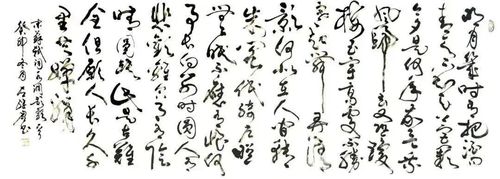 明月幾時有把酒问
青天不知天上宫闕
今夕是何年我欲乘
風歸去又恐瓊
樓玉宇高處不勝
寒起舞弄清
影何似在人间轉
朱阁低绮户照
無眠不應有恨何
事长向别时圆人有
悲歡離合月有陰
晴圆缺此事古難
全但願人長久千
里共嬋娟
宋蘇軾词水调歌头
癸卯冬月